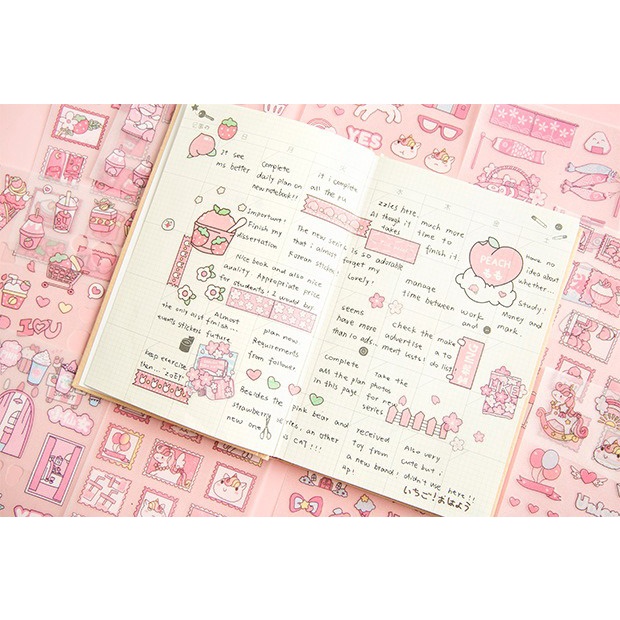 It see
ms better
Complete
daily plan on
new notebook!
it i complete
all the
Important!
Finish my
dissertation
The new series is so adorable
that i almost forget my
Korean sticker
lovely!
Nice book and also nice
quality. Appropriate price
for students! I would buy
the only
event stickers future
Almost
finish...
plan new
Requirements
from follower
keep exercise
then...
Besides the
strawberry series, an other
new one is CAT!!!
pink bear and
zzles here.
As though it
takes
much more
time to
finish it.
PEACH
もも
have no
idea about
whether...
Study!
Money and
mark.
manage
time between work and
seems
have more
than 10 ads..
check the make
advertise a to
ment tests! do list
Complete
all the plan
in this page.
Take the
photos
for new
series
received
toy from
a new brand!
up!
Also very
cute but i
didn't use here!!
いちご!おはよう
YES
I
U